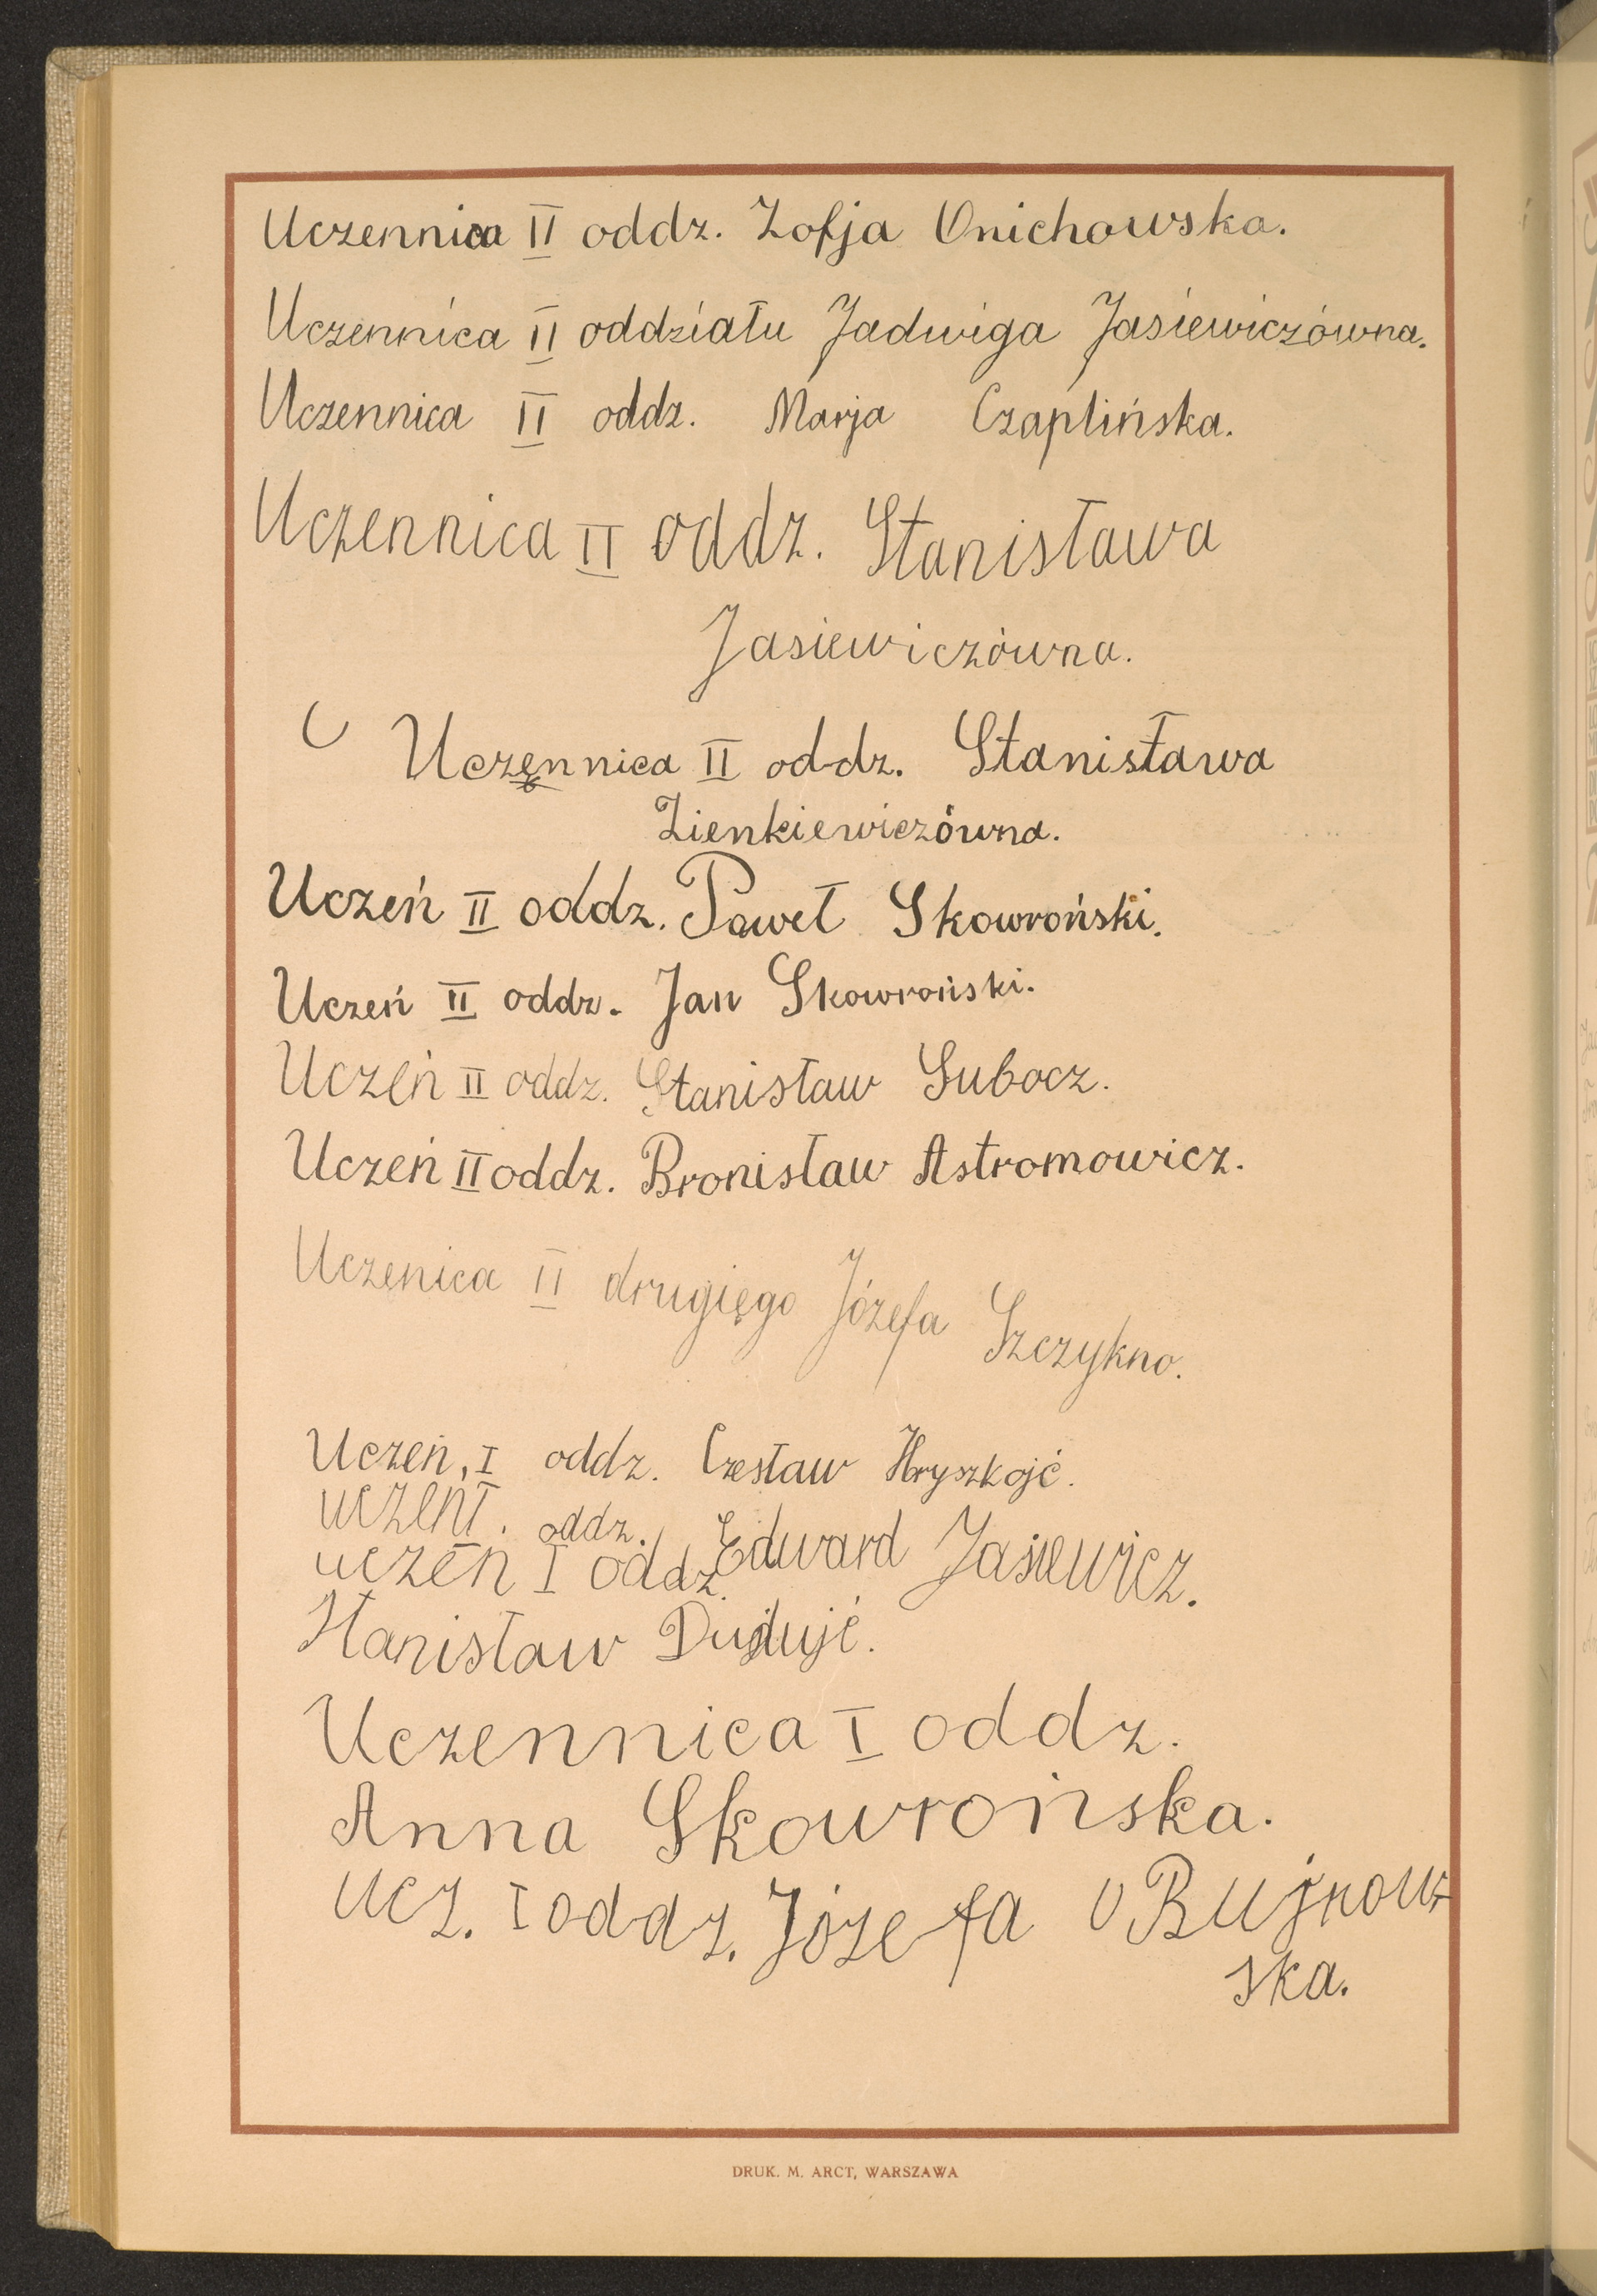 Uczennica II oddz. Zofja Onichowska.
Uczennica II oddziału Jadwiga Jasiewiczówna.
Uczennica II oddz. Marja Czaplińska.
Uczennica II oddz. Stanisława
Jasiewiczówna.
Uczennica II oddz. Stanisława
Zienkiewiczówna.
Uczeń II oddz. Paweł Skowroński.
Uczeń II oddz. Jan Skowroński.
Uczeń II oddz. Stanisław Subocz.
Uczeń II oddz. Bronisław Astromowicz.
Uczenica II drugięgo Józefa Szczykno.
Uczeń, I oddz. Czesław Hryszkojć.
uczeń I. oddz. Edward Jasiewicz.
uczeń I oddz.
Stanisław Dudujć.
Uczennica I oddz.
Anna Skowrońska.
ucz. I oddz. Józefa Bujnow
ska.
DRUK. M. ARCT, WARSZAWA